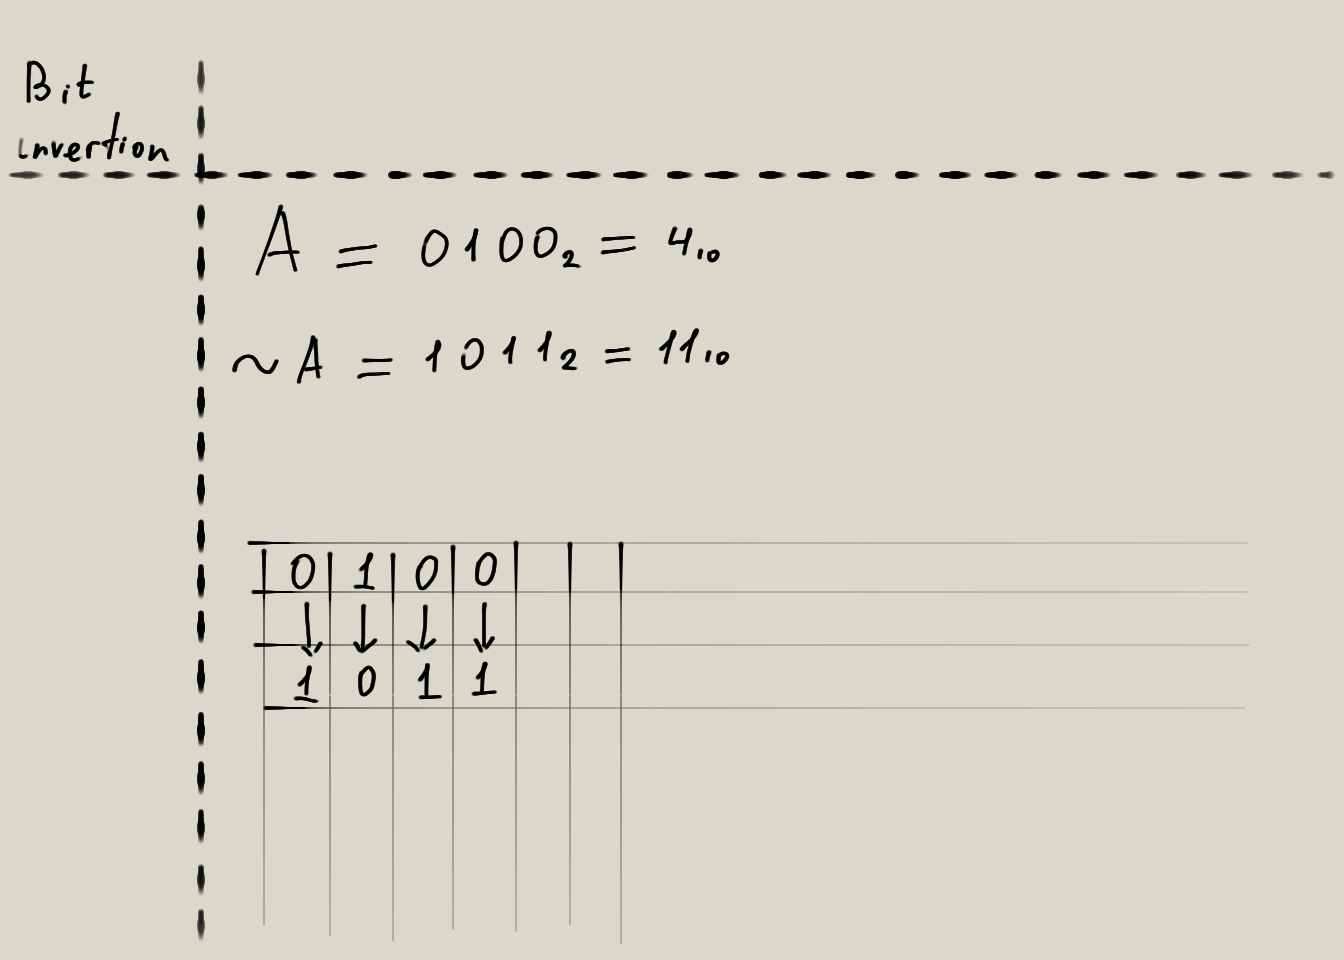 Bit
invertion
A = 0100₂ = 4₁₀
~A = 1011₂ = 11₁₀
0 1 0 0
↓ ↓ ↓ ↓
1 0 1 1